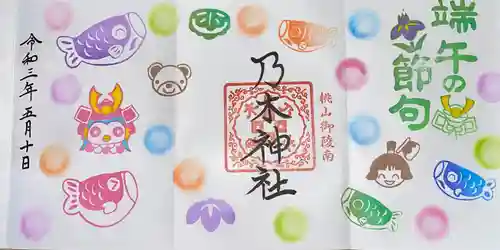 端午の
節句
桃山御陵南
乃木神社
令和三年五月十日